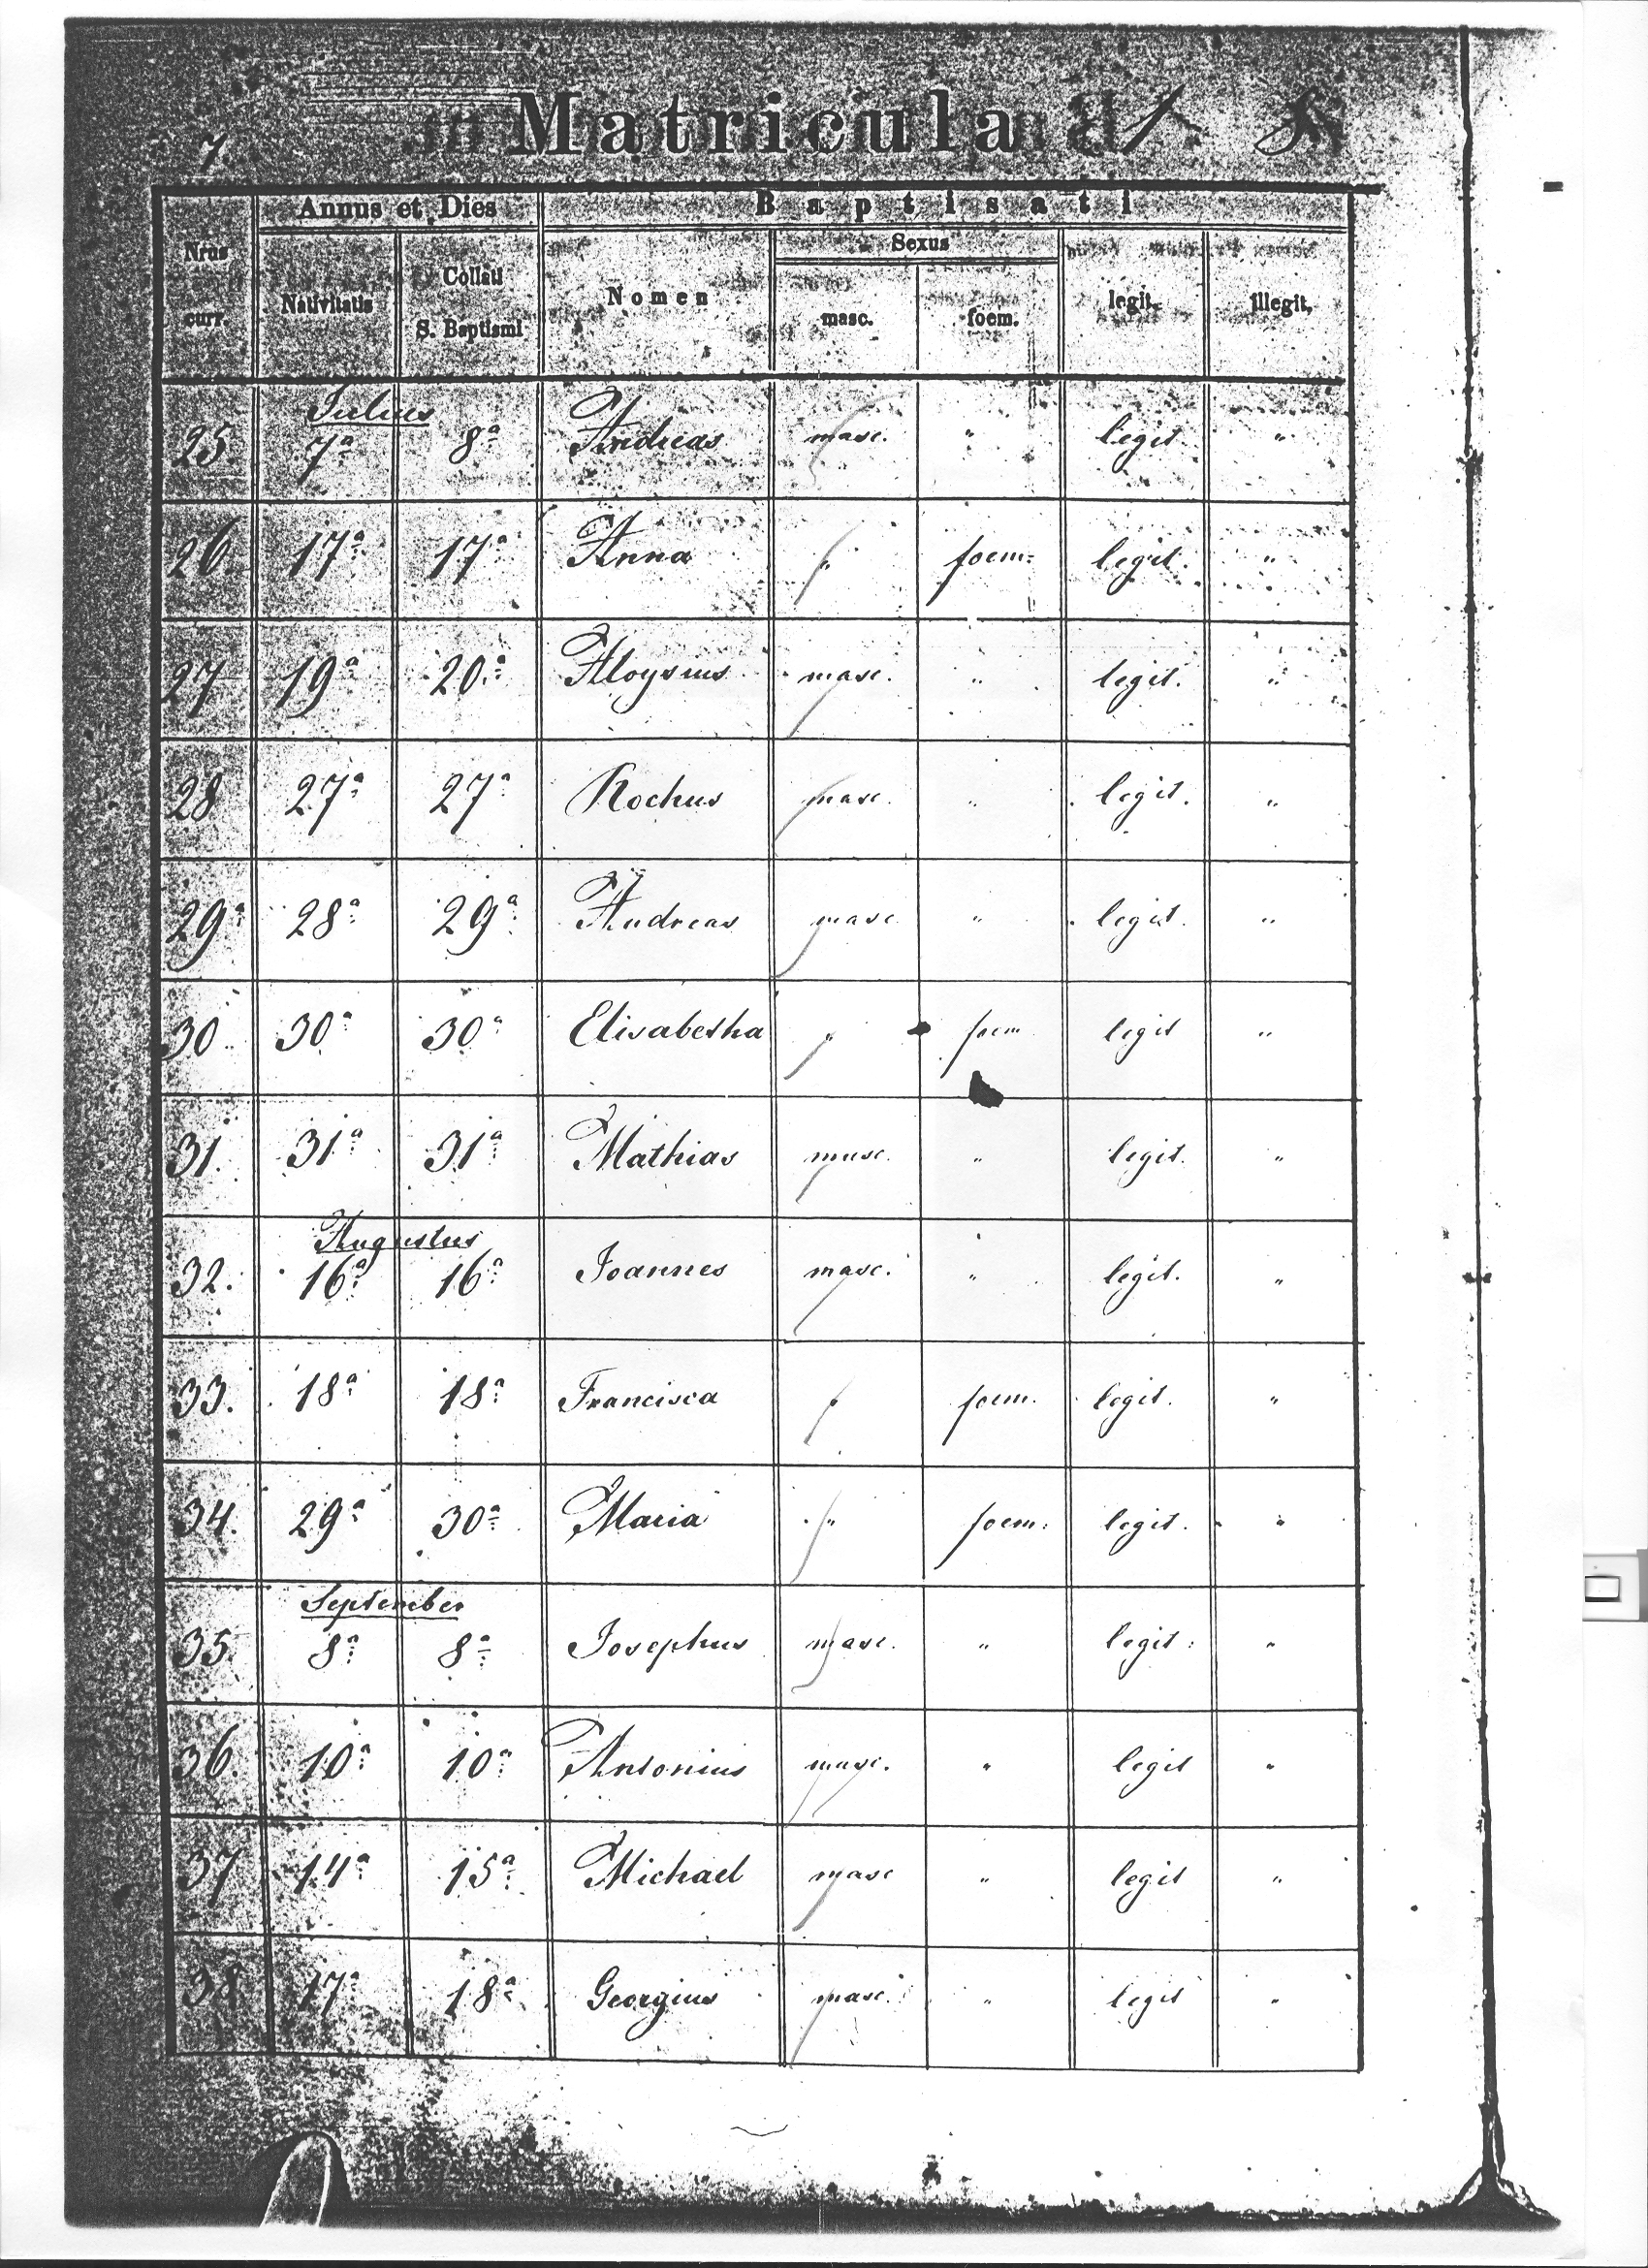 7.
Matricula
Annus et Dies
Baptisati
Nrus curr.
Nativitatis
Collati S. Baptismi
Nomen
Sexus
masc.
foem.
legit.
illegit.
Julius
25. 7ª 8ª Andreas masc. " legit. "
26. 17ª 17ª Anna " foem. legit. "
27 19ª 20ª Aloysius masc. " legit. "
28 27ª 27ª Rochus masc. " legit. "
29ª 28ª 29ª Andreas masc " legit. "
30 30ª 30ª Elisabetha " foem legit "
31. 31ª 31ª Mathias masc. " legit. "
Augustus
32. 16ª 16ª Joannes masc. " legit. "
33. 18ª 18ª Francisca " foem. legit. "
34. 29ª 30ª Maria " foem. legit. "
September
35. 8ª 8ª Josephus masc. " legit. "
36. 10ª 10ª Antonius masc. " legit "
37 14ª 15ª Michael masc " legit "
38 17ª 18ª Georgius masc. " legit "